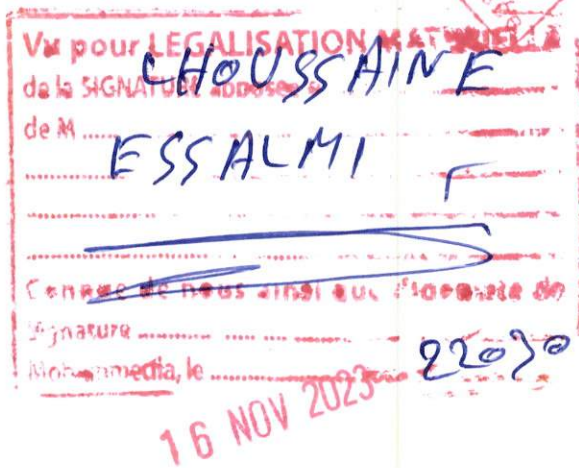 Vu pour LEGALISATION MATERIELLE
de la SIGNATURE apposée
LHOUSSAINE
de M
ESSALMI
Connue de nous ainsi que
de
Signature
22030
Mohammedia, le
16 NOV 2023